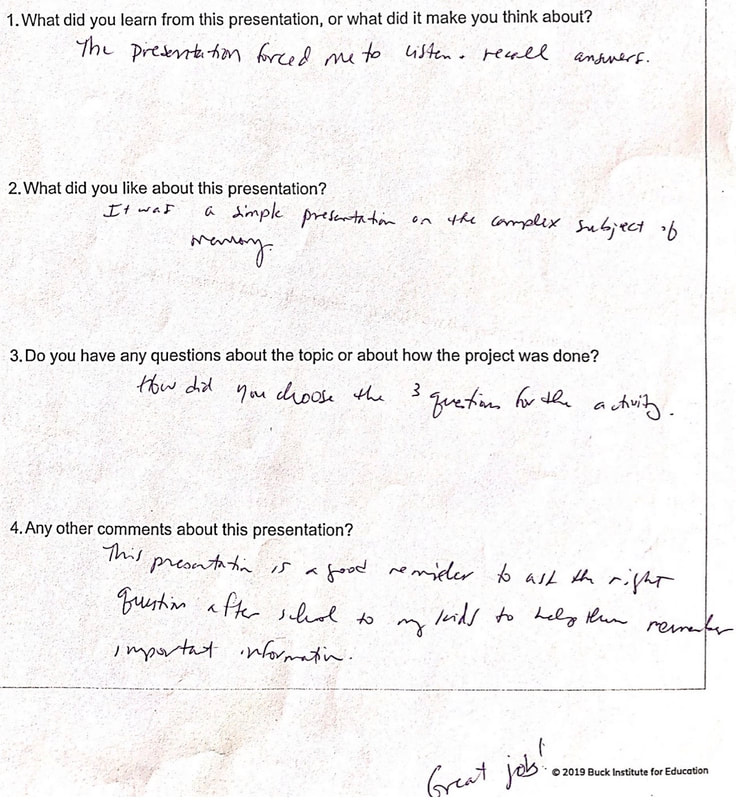 1. What did you learn from this presentation, or what did it make you think about?
The presentation forced me to listen + recall answers.
2. What did you like about this presentation?
It was a simple presentation on the complex subject of
memory.
3. Do you have any questions about the topic or about how the project was done?
How did you choose the 3 questions for the activity.
4. Any other comments about this presentation?
This presentation is a good reminder to ask the right
question after school to my kids to help them remember
important information.
Great job!
© 2019 Buck Institute for Education